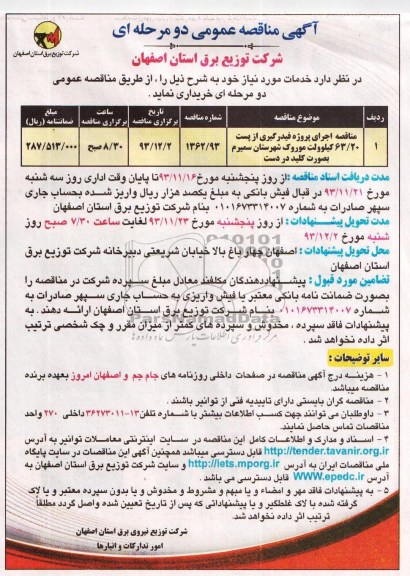 آگهی مناقصه عمومی دو مرحله ای
شرکت توزیع برق استان اصفهان
شرکت توزیع برق استان اصفهان
در نظر دارد خدمات مورد نیاز خود به شرح ذیل را ، از طریق مناقصه عمومی
دو مرحله ای خریداری نماید .
ردیف موضوع مناقصه شماره مناقصه تاریخ برگزاری مناقصه ساعت برگزاری مناقصه مبلغ ضمانتنامه (ریال)
۱ مناقصه اجرای پروژه فیدرگیری از پست ۶۳/۲۰ کیلوولت موروک شهرستان سمیرم بصورت کلید در دست ۱۳۶۲/۹۳ ۹۳/۱۲/۲ ۸/۳۰ صبح ۲۸۷/۵۱۳/۰۰۰
مدت دریافت اسناد مناقصه :از روز پنجشنبه مورخ ۹۳/۱۱/۱۶ تا پایان وقت اداری روز سه شنبه
مورخ ۹۳/۱۱/۲۱ در قبال فیش بانکی به مبلغ یکصد هزار ریال واریز شده بحساب جاری
سپهر صادرات به شماره ۰۱۰۱۶۷۳۳۱۴۰۰۷ بنام شرکت توزیع برق استان اصفهان
مدت تحویل پیشنهادات : از روز پنجشنبه مورخ ۹۳/۱۱/۲۳ لغایت ساعت ۷/۳۰ صبح روز
شنبه مورخ ۹۳/۱۲/۲
محل تحویل پیشنهادات : اصفهان چهار باغ بالا خیابان شریعتی دبیرخانه شرکت توزیع برق
استان اصفهان
تضامین مورد قبول : پیشنهاددهندگان مکلفند معادل مبلغ سپرده شرکت در مناقصه را
بصورت ضمانت نامه بانکی معتبر یا فیش واریزی به حساب جاری سپهر صادرات به
شماره ۰۱۰۱۶۷۳۳۱۴۰۰۷ بنام شرکت توزیع برق استان اصفهان ارائه دهند . به
پیشنهادات فاقد سپرده ، مخدوش و سپرده های کمتر از میزان مقرر و چک شخصی ترتیب
اثر داده نخواهد شد .
سایر توضیحات :
۱ - هزینه درج آگهی مناقصه در صفحات داخلی روزنامه های جام جم و اصفهان امروز بعهده برنده
مناقصه میباشد.
۲ - مناقصه گران بایستی دارای تاییدیه فنی از توانیر باشند .
۳ - داوطلبان می توانند جهت کسب اطلاعات بیشتر با شماره تلفن ۱۳-۳۶۲۷۳۰۱۱ داخلی ۲۷۰ واحد
مناقصات تماس حاصل نمایند.
۴ - اسناد و مدارک و اطلاعات کامل این مناقصه در سایت اینترنتی معاملات توانیر به آدرس
http://tender.tavanir.org.ir قابل دسترسی میباشد همچنین آگهی این مناقصات در سایت پایگاه
ملی مناقصات ایران به آدرس http://iets.mporg.ir و سایت شرکت توزیع برق استان اصفهان به
آدرس WWW.epedc.ir قابل دسترسی می باشد .
۵ - به پیشنهادات فاقد مهر و امضاء و یا مبهم و مشروط و مخدوش و یا بدون سپرده معتبر و یا لاک
گرفته شده با لاک غلطگیر و یا پیشنهاداتی که پس از تاریخ تعیین شده واصل گردد مطلقا
ترتیب اثر داده نخواهد شد.
شرکت توزیع نیروی برق استان اصفهان
امور تدارکات و انبارها